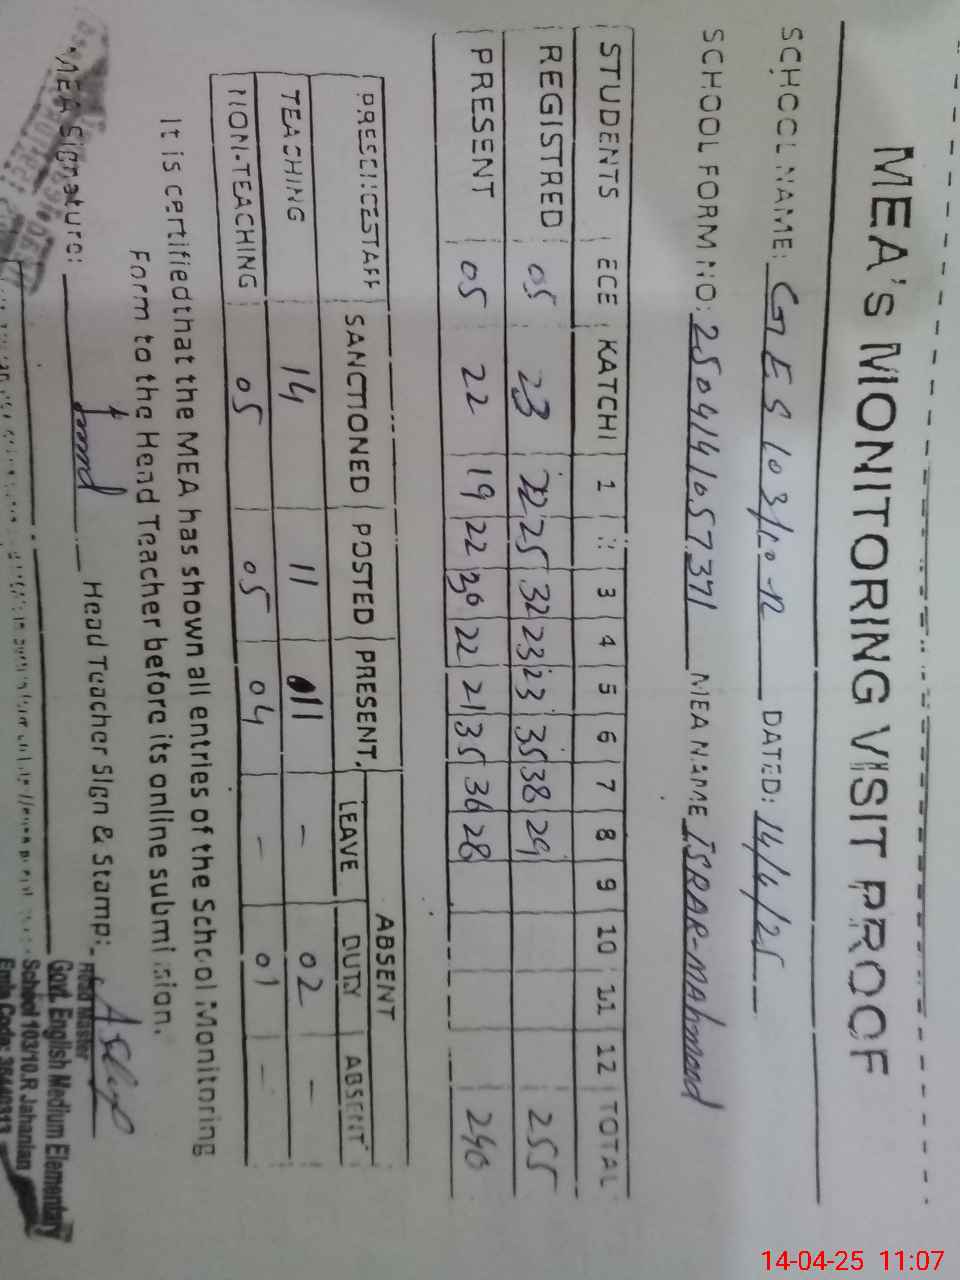 MEA'S MONITORING VISIT PROOF
SCHOOL NAME: GES 103/10-R DATED: 14/4/25
SCHOOL FORM NO: 2504141057371 MEA NAME ISRAR-MAhmood
STUDENTS ECE KATCHI 1 2 3 4 5 6 7 8 9 10 11 12 TOTAL
REGISTRED 05 23 22 25 32 23 23 35 38 29 255
PRESENT 05 22 19 22 30 22 21 35 36 28 240
ABSENT
PRESENCE STAFF SANCTIONED POSTED PRESENT LEAVE DUTY ABSENT
TEACHING 14 11 11 - 02 -
NON-TEACHING 05 05 04 - 01 -
It is certified that the MEA has shown all entries of the School Monitoring
Form to the Head Teacher before its online submission.
MEA Signature: Head Teacher Sign & Stamp:
Head Master
Govt. English Medium Elementary
School 103/10.R Jahanian
Emis Code: 36440313
14-04-25 11:07